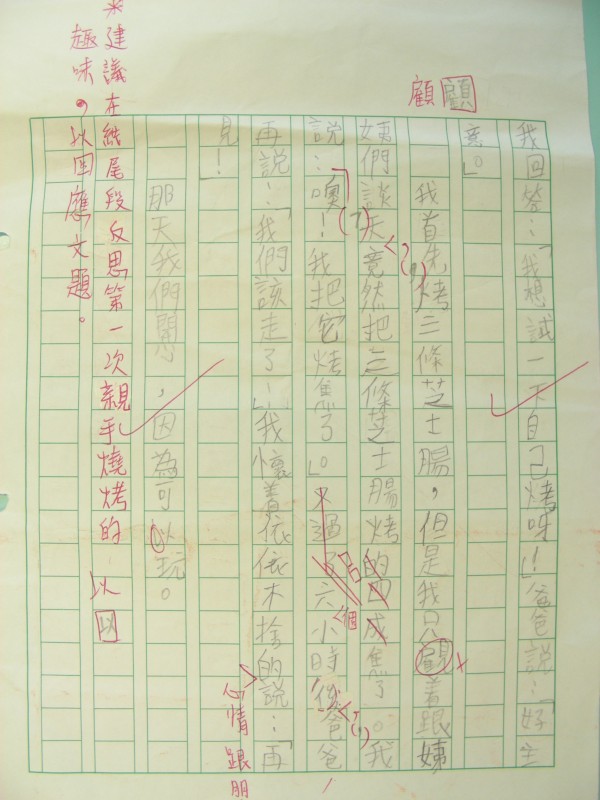 顧顧
我回答：「我想試一下自己烤呀！」爸爸說：「好主
意。」
我首先烤三條芝士腸，但是我只顧着跟姨
姨們談天，竟然把三條芝士腸烤的成焦了。我
說：「噢！我把它烤焦了。」過了六小時後，爸爸
再說：「我們該走了！」我懷着依依不捨的說：「再
見！」
那天我們開心，因為可以玩。
個
心情跟朋
以以
來建議在結尾段反思第一次親手燒烤的
趣味，以回應文題。